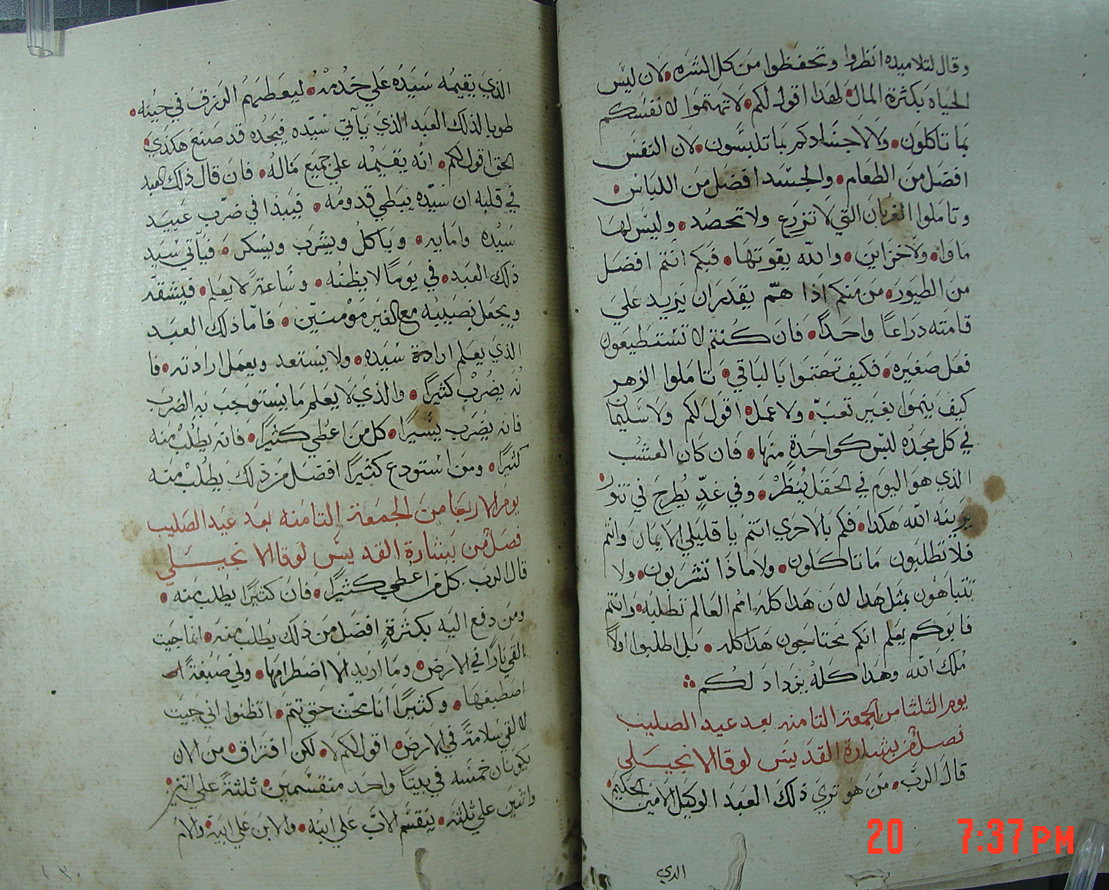 وقال لتلاميذه انظروا وتحفظوا من كل الشره • لان ليس
الحياه بكثرة المال • لهذا اقول لكم • لا تهتموا لانفسكم
بما تاكلون • ولا لاجسادكم بما تلبسون • لان النفس
افضل من الطعام • والجسد افضل من اللباس •
وتاملوا الغربان التي لا تزرع ولا تحصد • وليس لها
ماوا • ولا خزاين • والله يقوتها • فبكم انتم افضل
من الطيور • من منكم اذا هتم يقدر ان يزيد علي
قامته دراعا واحدا • فان كنتم لا تستطيعون
فعل صغيره • فكيف تهتموا بالباقي • تاملوا الزهر
كيف ينموا بغير تعب • ولا عمل • اقول لكم ولا سليمان
في كل مجده ليس كواحدة منها • فان كان العشب
الذي هو اليوم في الحقل ينظر • وفي غد يطرح في تنور
يزينه الله هكذا • فكم بالاحري انتم يا قليلي الايمان وانتم
فلا تطلبون ما تاكلون • ولا ماذا تشربون • ولا
تتباهون بمثل هذا لان هذا كله امم العالم تطلبه • وانتم
فابوكم يعلم انكم محتاجون هذا كله • بل اطلبوا اولا
ملك الله وهذا كله يزداد لكم
يوم الثلثا من الجمعه الثامنه بعد عيد الصليب
فصل من بشارة القديس لوقا الانجيلي
قال الرب • من هو تري ذلك العبد الوكيل الامين الحكيم
الذي
الذي يقيمه سيده علي خدمه • ليعطيهم الرزق في حينه •
طوبا لذلك العبد الذي ياتي سيده فيجده قد صنع هكذي •
الحق اقول لكم • انه يقيمه علي جميع ماله • فان قال ذلك العبد
في قلبه ان سيده يبطي قدومه • فيبدا في ضرب عبيد
سيده وامايه • وياكل ويشرب ويسكر • فياتي سيد
ذلك العبد • في يوما لا يظنه • وساعة لا يعلم • فيشقه
ويجعل نصيبه مع الغير مومنين • فاما ذلك العبد
الذي يعلم ارادة سيده • ولا يستعد ويعمل ارادته • فا
نه يضرب كثيرا • والذي لا يعلم ما يستوجب به الضرب
فانه يضرب يسيرا • كل من اعطي كثيرا • فانه يطلب منه
كثيرا • ومن استودع كثيرا افضل من ذلك يطلب منه
يوم الاربعا من الجمعة الثامنه بعد عيد الصليب
فصل من بشارة القديس لوقا الانجيلي
قال الرب كل من اعطي كثيرا • فان كثيرا يطلب منه •
ومن دفع اليه بكثرة افضل من ذلك يطلب منه • انما جيت
القي نارا في الارض • وما اريد الا اضطرامها • ولي صبغة
اصطبغها • وكثيرا انا بحث حتي تتم • اتظنوا اني جيت
لالقي سلامة في الارض • اقول لكم لا • لكن افتراق • من الان
يكونان خمسه في بيتا واحد منقسمين • ثلثة علي اثنين •
واثنين علي ثلثه • ينقسم الاب علي ابنه • والابن علي ابيه • والام
20 7:37 PM